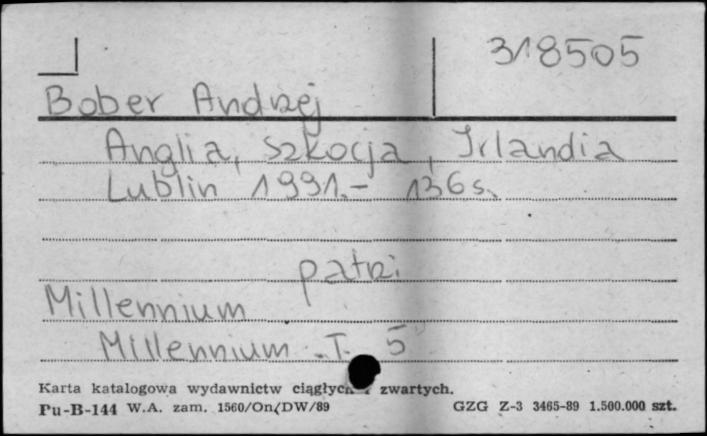 318505
Bober Andrzej
Anglia, Szkocja, Irlandia
Lublin 1991.- 136 s.
patrz:
Millennium
Millennium .T. 5
Karta katalogowa wydawnictw ciągłych i zwartych.
Pu-B-144 W.A. zam. 1560/On/DW/89 GZG Z-3 3465-89 1.500.000 szt.